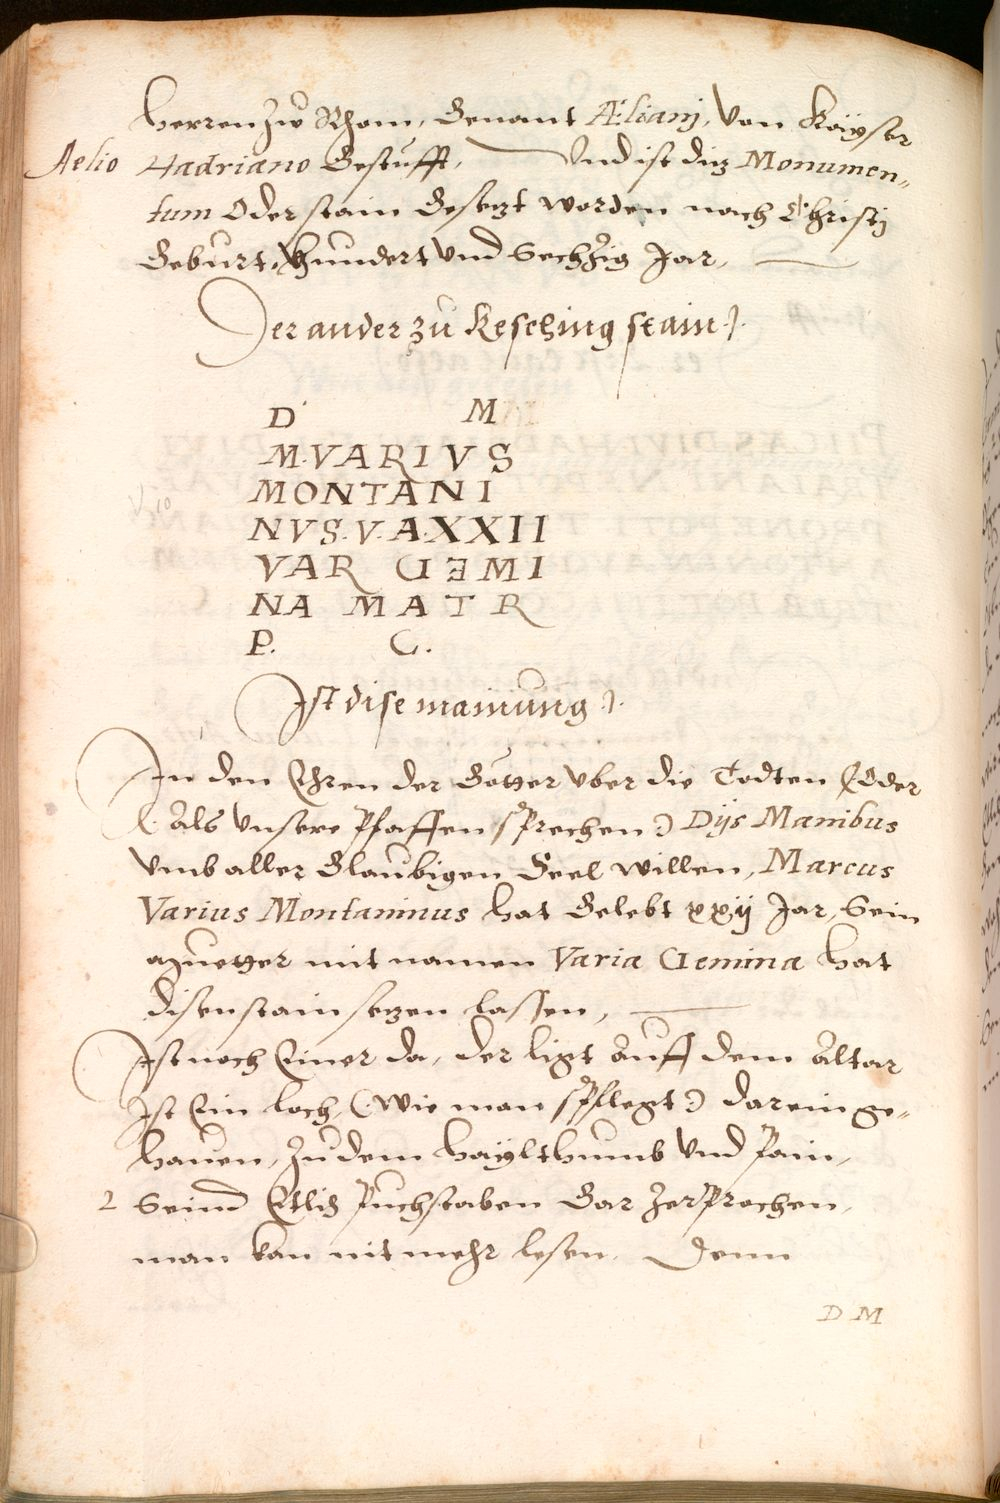 Herren zw Rhom, Genant Ælianj, Von Kayser
Aelio Hadriano Gestufft, Vnd ist diz Monumen„
tum Oder stain Gesezt worden nach Christj
Geburt, Hundert Vnd Sechzig Jar,
Der ander zu Kesching stain.
D M
M. VARIVS
MONTANI
NVS. V. A. XXII
VAR GEMI
NA MATR
P. C.
Ist dise mainung.
In den Ehren der Götter vber die Todten (Oder
(: Als Vnsere Pfaffen sprechen:) Dijs Manibus
Vmb aller Glaubigen Seel willen, Marcus
Varius Montaninus hat Gelebt xxij Jar, Sein
muetter mit namen Varia Gemina hat
disen stain sezen lassen,
Ist noch Einer da, der ligt Auff dem Altar
Ist Ein loch, (: wie man pflegt:) darein ge„
hauen, Zu dem Haylthumb Vnd Pain,
2 Seind Etlich Puchstaben Gar Zerprochen,
man kan nit mehr lesen. Denn
D M